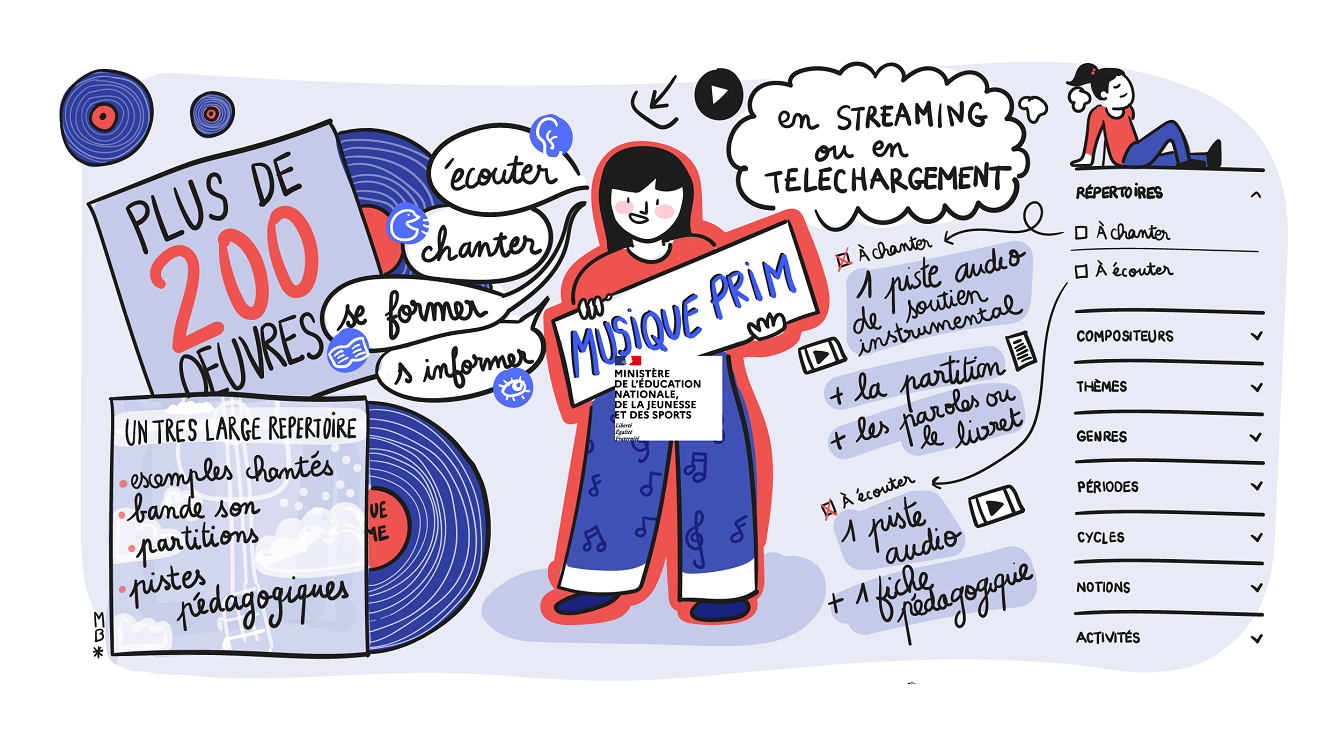 PLUS DE
200
OEUVRES
écouter
chanter
se former
s informer
MUSIQUE PRIM
MINISTÈRE
DE L'ÉDUCATION
NATIONALE,
DE LA JEUNESSE
ET DES SPORTS
Liberté
Égalité
Fraternité
UN TRES LARGE REPERTOIRE
exemples chantés
bande son
partitions
pistes
pédagogiques
UE
ME
MB*
en STREAMING
ou en
TELECHARGEMENT
À chanter
1 piste audio
de soutien
instrumental
+ la partition
+ les paroles ou
le livret
À écouter
1 piste
audio
+ 1 fiche
pédagogique
RÉPERTOIRES
À chanter
À écouter
COMPOSITEURS
THÈMES
GENRES
PÉRIODES
CYCLES
NOTIONS
ACTIVITÉS